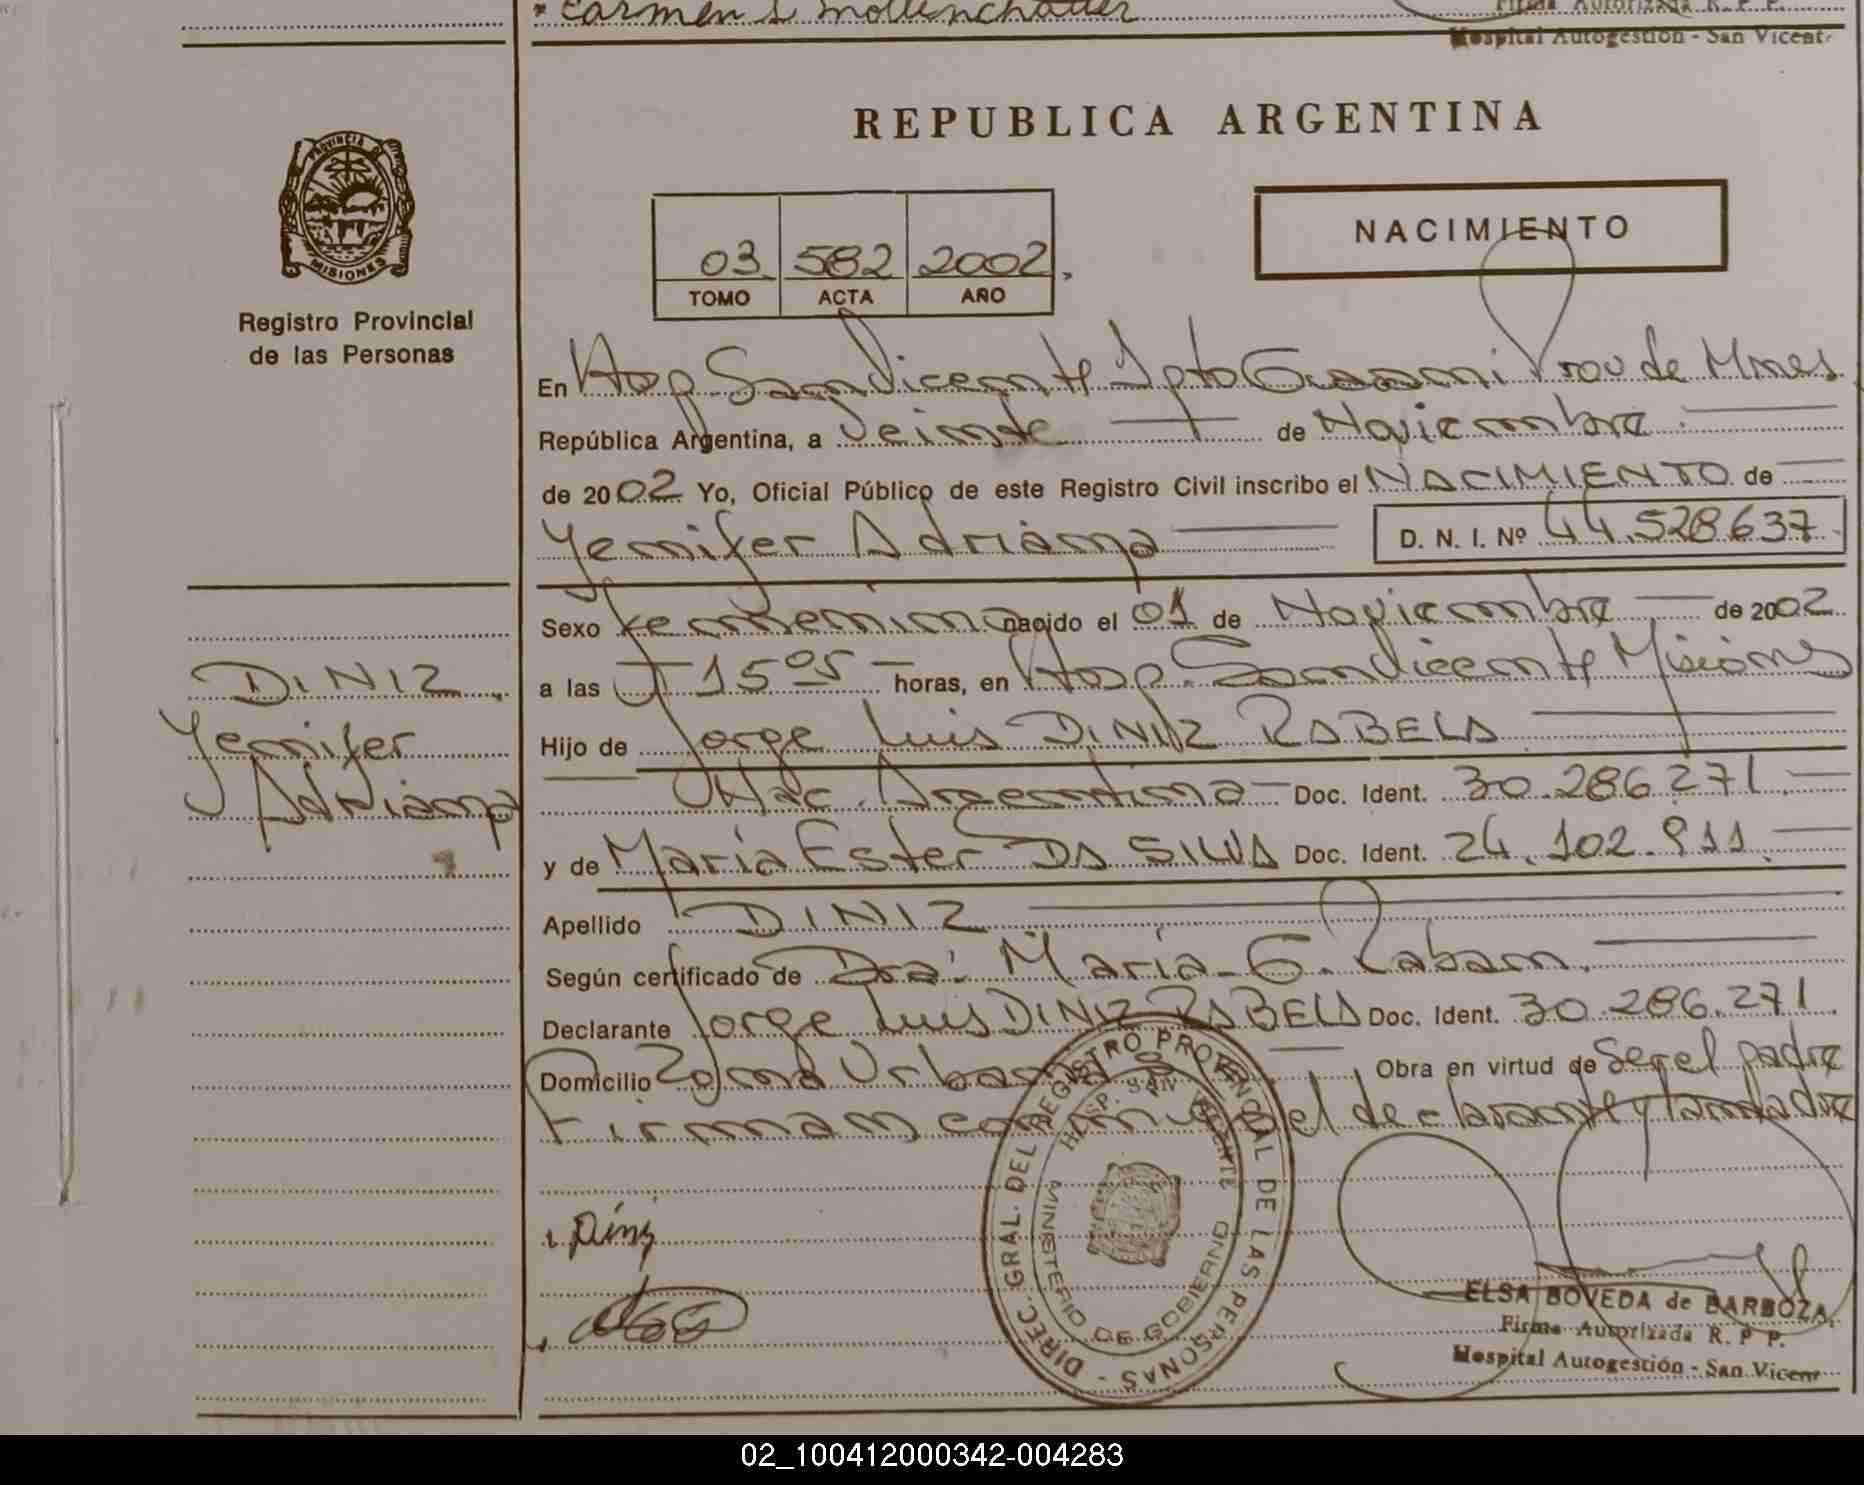 * Carmen S Mollenhauer
Firma Autorizada R. P. P.
Hospital Autogestión - San Vicent
REPUBLICA ARGENTINA
PROVINCIA DE
MISIONES
Registro Provincial
de las Personas
03 582 2002.
TOMO ACTA AÑO
NACIMIENTO
En Hosp. San Vicente Dpto Guarani Prov de Mnes
República Argentina, a Veinte de Noviembre
de 2002 Yo, Oficial Público de este Registro Civil inscribo el NACIMIENTO de
Yenifer Adriana D. N. I. Nº 44.528.637
Sexo femenino nacido el 01 de Noviembre de 2002
DINIZ
a las 15 05 horas, en Hosp. San Vicente Misiones
Yenifer
Hijo de Jorge Luis DINIZ RABELA
Adriana
Nac. Argentina Doc. Ident. 30.286.271
y de María Ester DA SILVA Doc. Ident. 24.102.911
Apellido DINIZ
Según certificado de Dra. María G. Laban.
Declarante Jorge Luis DINIZ RABELA Doc. Ident. 30.286.271
Domicilio Zona Urbana Obra en virtud de ser el padre
Firman conmigo el declarante y la madre
DIREC. GRAL. DEL REGISTRO PROVINCIAL DE LAS PERSONAS -
HOSP. SAN VICENTE
MINISTERIO DE GOBIERNO
Diniz
ELSA BOVEDA de BARBOZA
Firma Autorizada R. P. P.
Hospital Autogestión - San Vicent
02_100412000342-004283